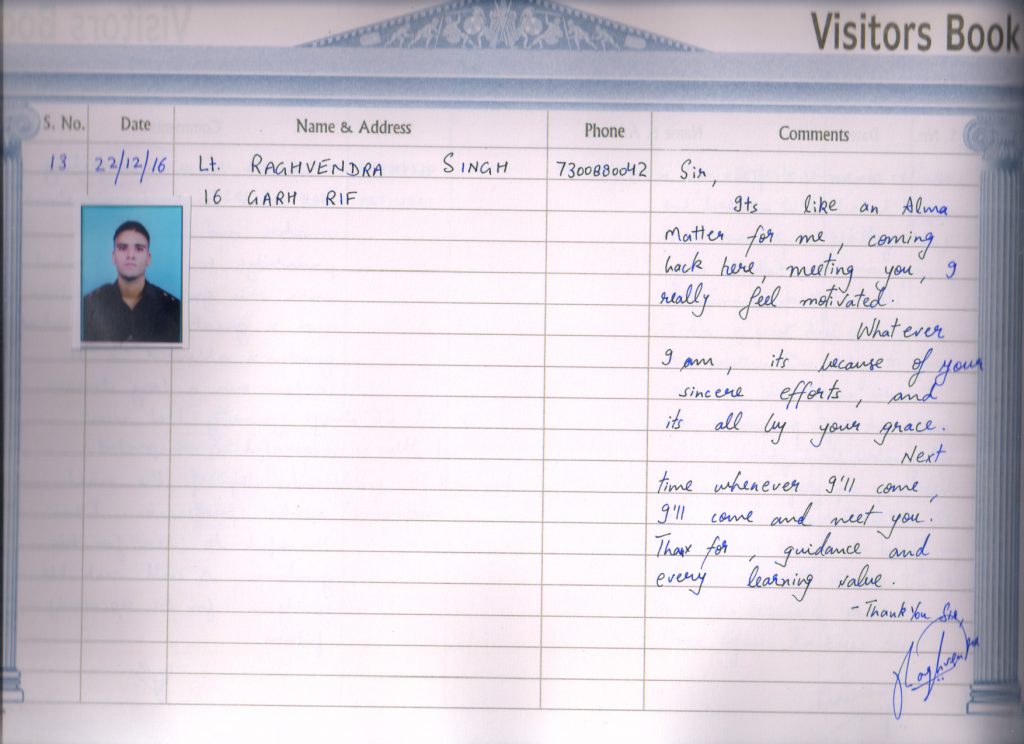 Visitors Book
S. No. Date Name & Address Phone Comments
13 22/12/16 Lt. RAGHVENDRA SINGH 7300880042 Sir,
16 GARH RIF
Its like an Alma
Matter for me, coming
back here, meeting you, I
really feel motivated.
What ever
I am, its because of your
sincere efforts, and
its all by your grace.
Next
time whenever I'll come,
I'll come and meet you.
Thanx for, guidance and
every learning value.
- Thank You Sir,
Raghvendra